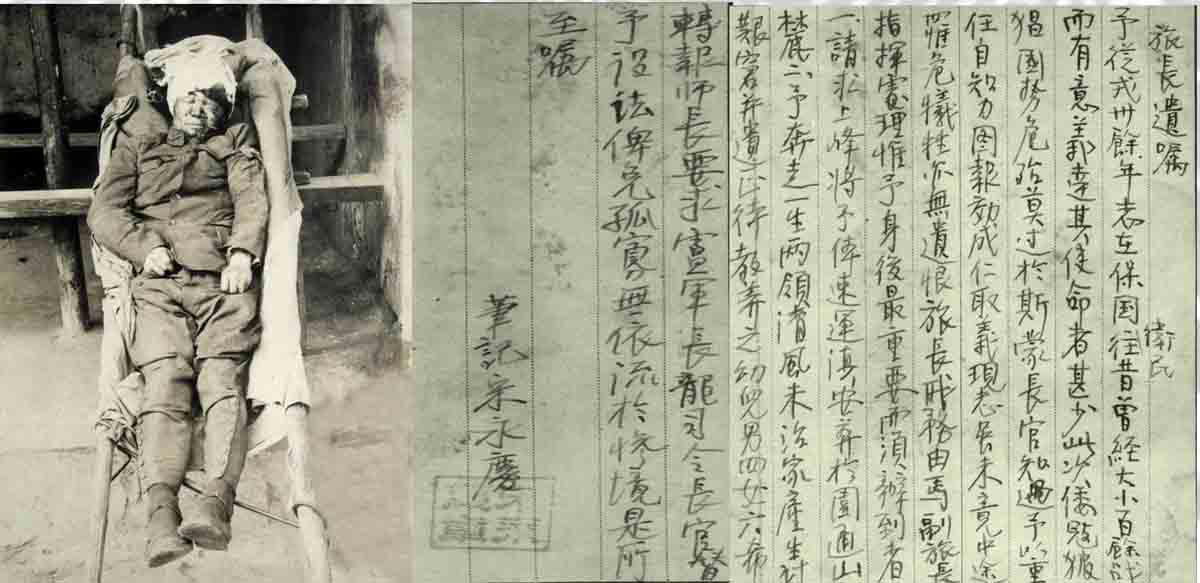 旅長遺嘱
衛民
予從戎卅餘年志在保国往昔曾経大小百餘战
而有意義達其使命者甚少此次倭寇披
猖國势危殆莫过於斯蒙長官知遇予以重
任自智力图報効成仁取義現志虽未竟中途
罹危犧牲亦無遺恨旅長職務由馬副旅長
指揮處理惟予身後最重要而須辦到者
一請求上峰將予体速運滇安葬於圓通山
麓 予奔走一生两領清風未治家產生計
艱窘并遺 律教养之幼児男四女六希
轉報師長要求盧軍長龍司令長官督
予設法俾免孤寡無依流於惨境是所
至嘱
筆記宋永慶